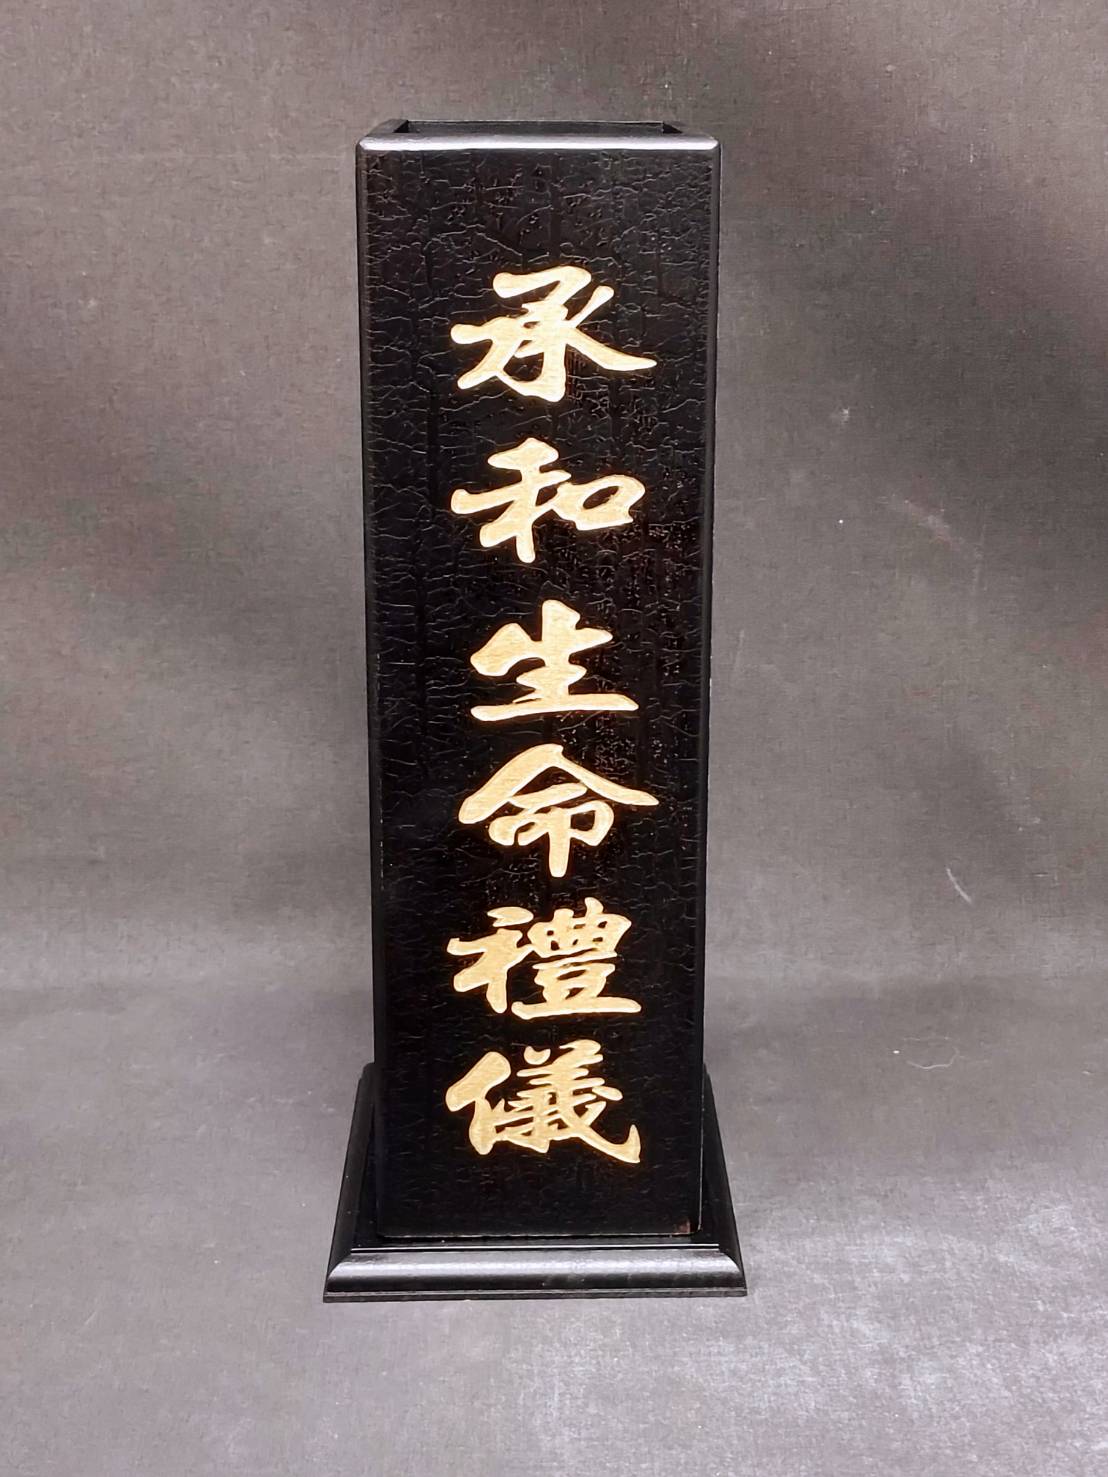 承和生命禮儀